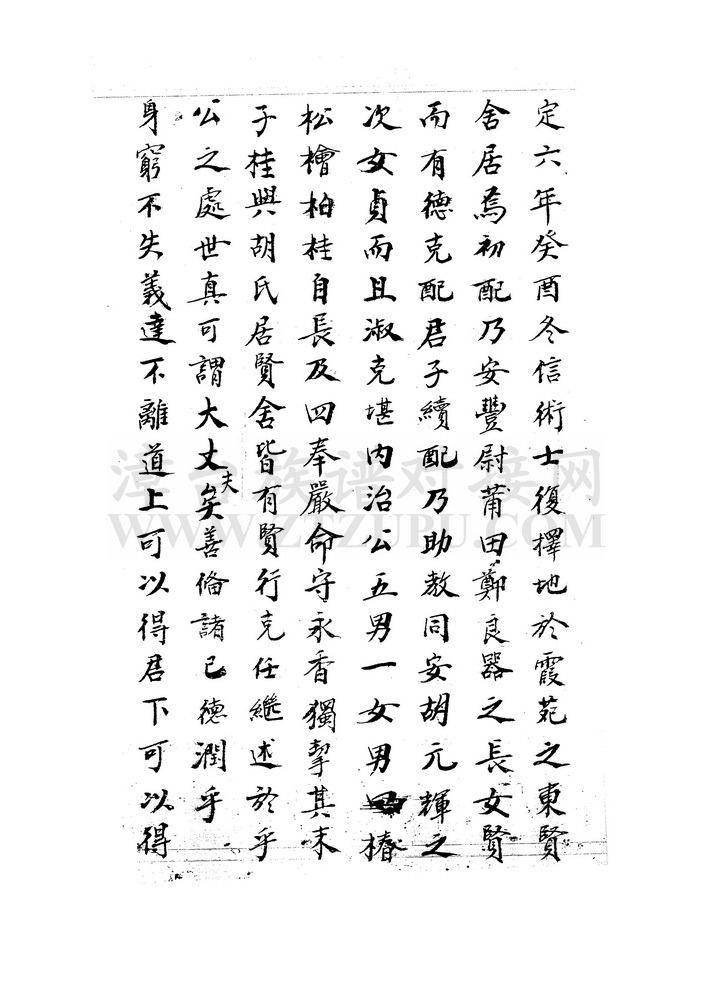 定六年癸酉冬信術士復擇地於霞苑之東賢
舍居焉初配乃安豐尉莆田鄭良器之長女賢
而有德克配君子續配乃助教同安胡元輝之
次女貞而且淑克堪內治公五男一女男曰椿
松檜柏桂自長及四奉嚴命守永香獨挈其末
子桂與胡氏居賢舍皆有賢行克任繼述於乎
公之處世真可謂大丈夫矣善脩諸己德潤乎
身窮不失義達不離道上可以得君下可以得
漳台族谱对接网
WWW.ZTZUPU.COM